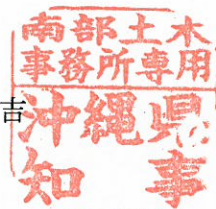 南部土木
事務所専用
吉
沖縄県
知事